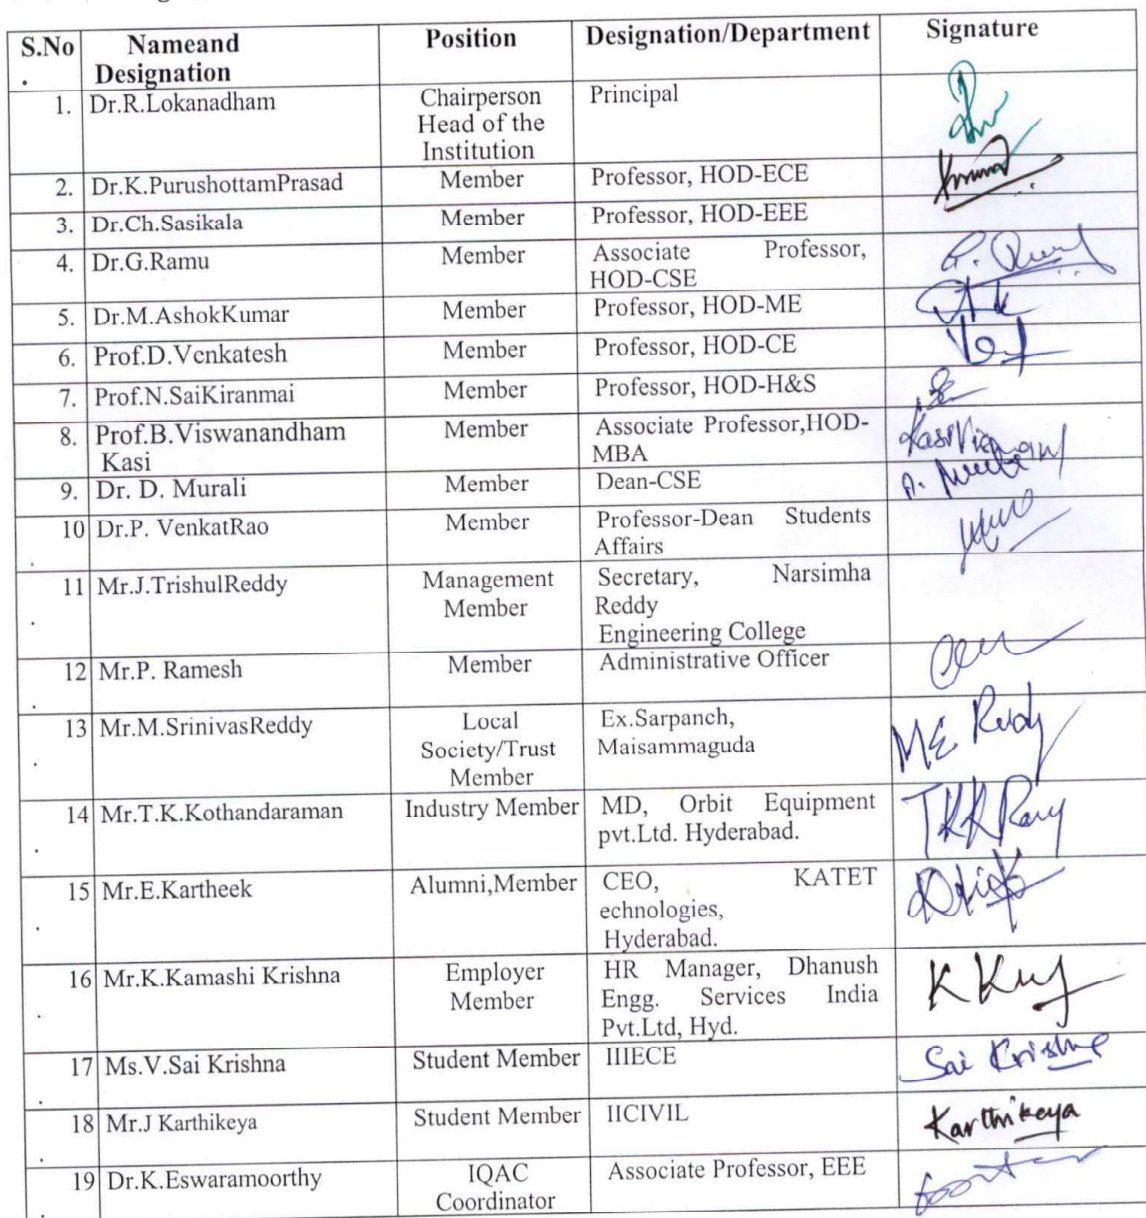 S.No Nameand Position Designation/Department Signature
. Designation
1. Dr.R.Lokanadham Chairperson Principal
Head of the
Institution
2. Dr.K.PurushottamPrasad Member Professor, HOD-ECE
3. Dr.Ch.Sasikala Member Professor, HOD-EEE
4. Dr.G.Ramu Member Associate Professor,
HOD-CSE
5. Dr.M.AshokKumar Member Professor, HOD-ME
6. Prof.D.Venkatesh Member Professor, HOD-CE
7. Prof.N.SaiKiranmai Member Professor, HOD-H&S
8. Prof.B.Viswanandham Member Associate Professor,HOD-
Kasi MBA
9. Dr. D. Murali Member Dean-CSE
10 Dr.P. VenkatRao Member Professor-Dean Students
. Affairs
11 Mr.J.TrishulReddy Management Secretary, Narsimha
. Member Reddy
Engineering College
12 Mr.P. Ramesh Member Administrative Officer
.
13 Mr.M.SrinivasReddy Local Ex.Sarpanch, Reddy
. Society/Trust Maisammaguda
Member
14 Mr.T.K.Kothandaraman Industry Member MD, Orbit Equipment
. pvt.Ltd. Hyderabad.
15 Mr.E.Kartheek Alumni,Member CEO, KATET
. echnologies,
Hyderabad.
16 Mr.K.Kamashi Krishna Employer HR Manager, Dhanush
. Member Engg. Services India
Pvt.Ltd, Hyd.
17 Ms.V.Sai Krishna Student Member IIIECE Sai Krishna
.
18 Mr.J Karthikeya Student Member IICIVIL Karthikeya
.
19 Dr.K.Eswaramoorthy IQAC Associate Professor, EEE
. Coordinator